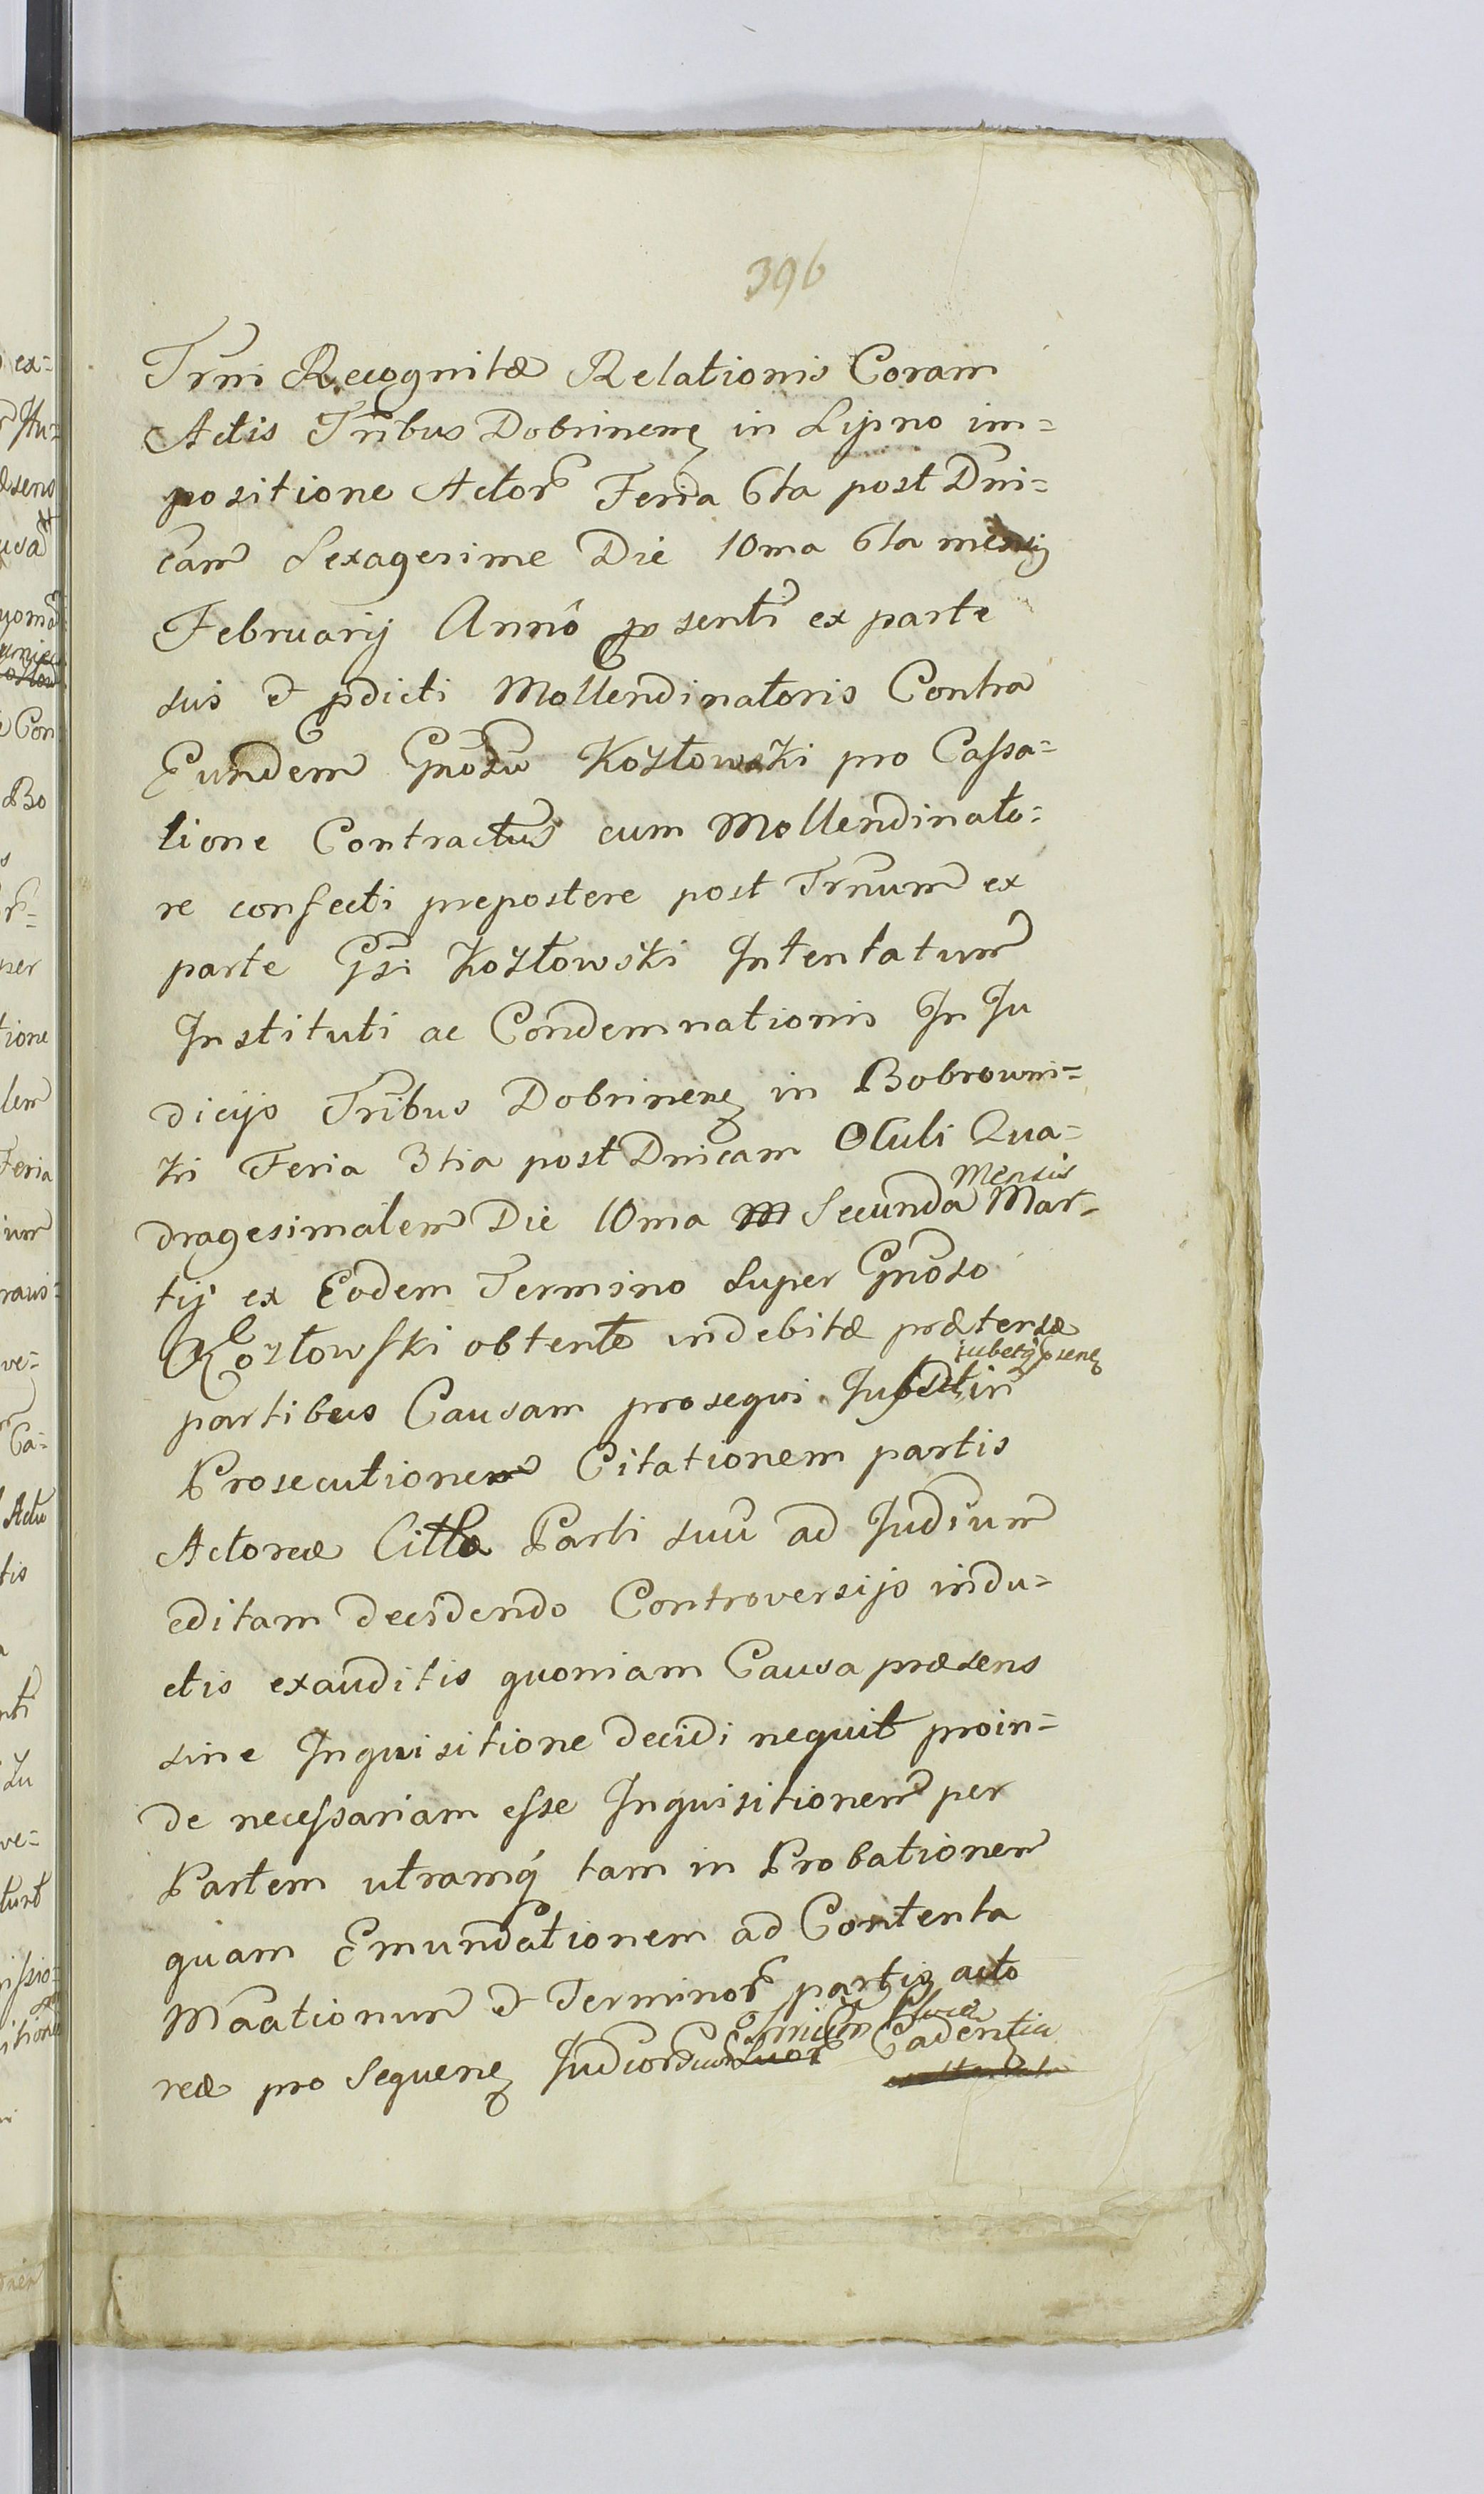 396
Trni Recognitæ Relationis Coram
Actis Tribus Dobrinen in Lipno im=
positione Actor Feria 6ta post Dni=
cam Sexagesime Die 10ma 6ta mensis
Februarij Annô psenti ex parte
sui & pdicti Mollendinatoris Contra
Eundem Gnosu Kozłowski pro Cassa=
tione Contractus cum Mollendinato=
re confecti prepostere post Trnum ex
parte Gsi Kozłowski Intentatum
Instituti ac Condemnationis In Ju
dicijs Tribus Dobrinen in Bobrowni=
ki Feria 3tia post Dnicam Oculi Qua=
Mensis
dragesimalem Die 10ma Secunda Mar-
tij ex Eodem Termino super Gnoso
Kozłowski obtente indebitæ prætensæ
partibus Causam prosequi in
Prosecutionem Citationem partis
Actoreæ Citta Parti suu ad Judium
editam decidendo Controversijs indu=
ctis exauditis quoniam Causa præsens
sine Inquisitione decidi nequit proin=
de necessariam esse Inquisitionem per
Partem utramq tam in Probationem
quam Emundationem ad Contenta
Maationum & Terminor partis acto
reæ pro Sequen Cadentia